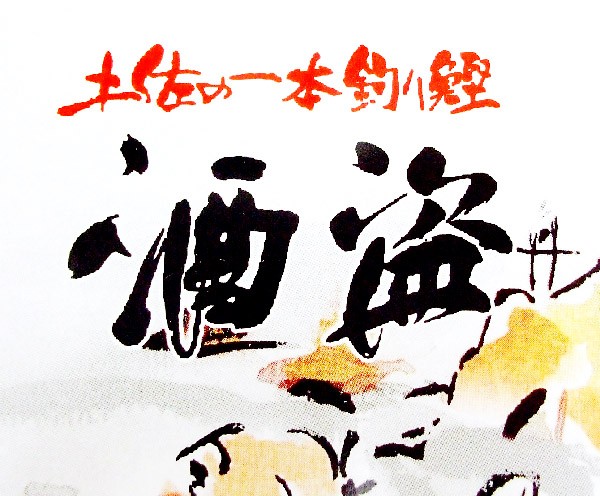 土佐の一本釣り鰹
酒盗